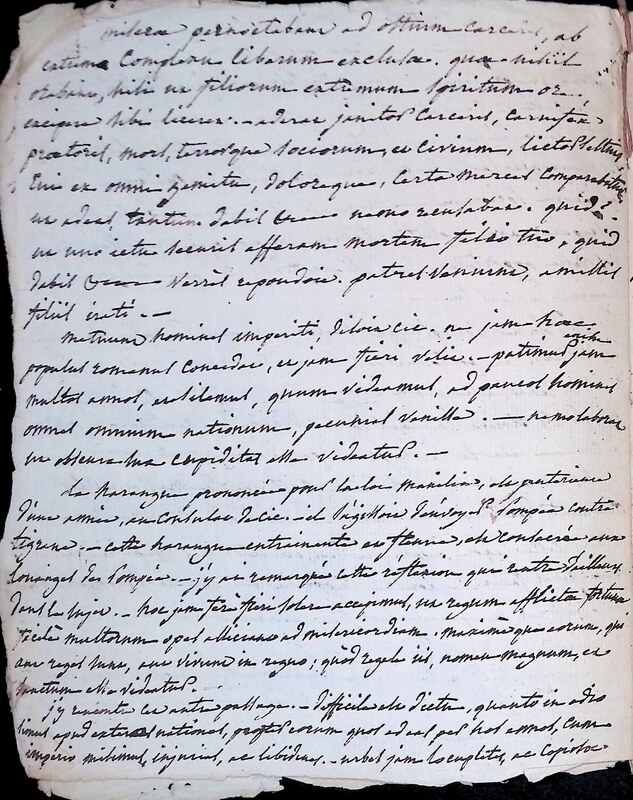 miserae pernoctabant ad ostium carceris, ab
extremo Complexu liberum exclusae. quae nihil
orabant, nisi ut filiorum extremum spiritum
excipere sibi liceret. - aderat janitor Carceris, carnifex
praetoris, mors, terrorque sociorum, et Civium, lictor Sextius
Cui ex omni gemitu, doloreque, Certa merces Comparabatur
ut adeas tantum dabis nemo recusabat. quid?
ut uno ictu securis afferam mortem filio tuo, quid
dabis
filii irati. -
metuunt homines imperiti, ne jam hoc
populus romanus Concedat, et jam fieri velit. - patimur jam
multos annos, et silemus, quum videamus, ad paucos homines
omnes omnium nationum, pecunias
ut obscura sua cupiditas esse videatur. -
La harangue prononcée pour la loi manilia, est postérieure
d'une année, au Consulat de Cic. - il s'agissoit d'envoyer Pompée contre
tigrane. - cette harangue entrainante et fleurie, est consacrée aux
louanges de Pompée. - j'y ai remarqué cette réflexion qui entre d'ailleurs
dans le sujet. - hoc jam ferè fieri solere accepimus, ut regum afflictae fortunae
facilè multorum opes alliciant ad misericordiam. maximè que eorum, qui
aut reges sunt, aut vivunt in regno; quòd regale iis, nomen magnum, et
sanctum esse videatur.
j'y rencontre cet autre passage. - difficile est dictu, quanto in odio
simus apud exteras nationes, propter eorum quos ad eas per hos annos, cum
imperio misimus, injurias, ac libidines. - urbes jam locupletes, ac Copiosae